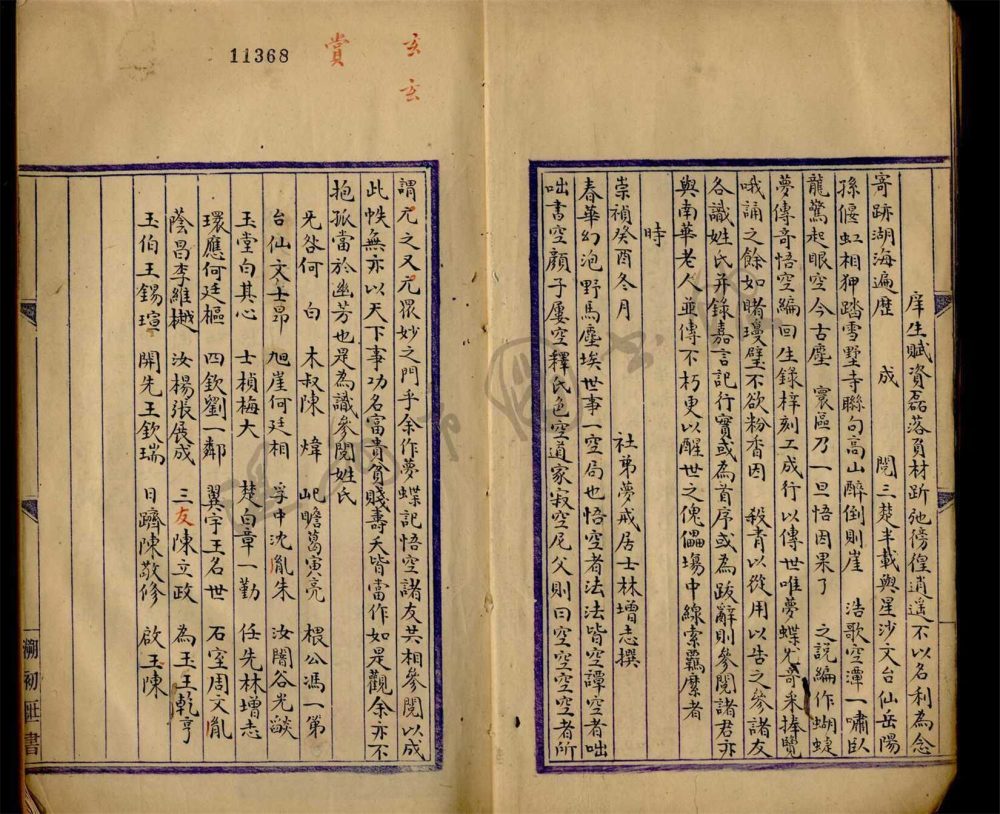 庠生賦資磊落負材跅弛徬徨逍遥不以名利為念
寄跡湖海遍歷 成 閱三楚半載與星沙文台仙岳陽
孫偃虹相狎踏雪墅寺聯句高山醉倒則崖 浩歌空潭一嘯臥
龍驚起眼空今古塵 寰區乃一旦悟因果了 之説編作蝴蝶
夢傳奇悟空編回生錄梓刻工成行以傳世唯夢蝶尤奇采捧覽
哦誦之餘如睹瓊璧不欲粉香因 殺青以從用以告之參諸友
各識姓氏并錄嘉言記行實或為首序或為跋辭則參閱諸君亦
與南華老人並傳不朽更以醒世之傀儡塲中線索覊縻者
時
崇禎癸酉冬月 社弟夢戒居士林增志撰
春華幻泡野馬塵埃世事一空局也悟空者法法皆空譚空者咄
咄書空顏子屢空釋氏色空道家寂空尼父則曰空空空空者所
11368
玄玄
賞
謂元之又元眾妙之門乎余作夢蝶記悟空諸友共相參閱以成
此帙無亦以天下事功名富貴貧賤壽夭皆當作如是觀余亦不
抱孤當於幽芳也是為識參閱姓氏
无咎何 白 木叔陳 煒 屺瞻葛寅亮 根公馮一第
台仙文士昂 旭崖何廷相 孚中沈胤朱 汝闇谷光燄
玉堂白其心 士楨梅大 楚白章一勤 任先林增志
環應何廷樞 四欽劉一鄰 翼宇王名世 石室周文胤
蔭昌李維樾 汝楊張展成 三友陳立政 為玉王乾亨
玉伯王錫瑄 開先王欽瑞 日躋陳敬修 啟玉陳
溯初 書